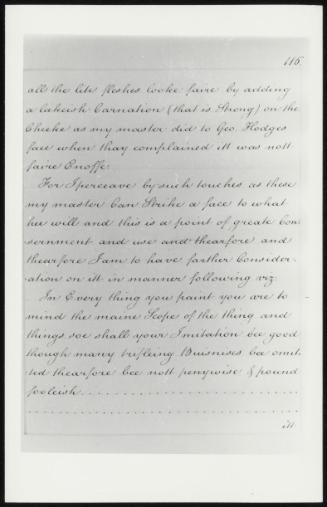 116.
all the lite fleshes looke faire by adding
a lakeish Carnation (that is Strong) on the
Cheeke as my master did to Geo. Hodges
face when thay complained itt was nott
faire Enoffe.
For I perceave by such touches as these
my master Can Strike a face to what
hee will and this is a point of greate Con
sernment and use and thearfore and
thearfore I am to have farther Consider-
ation on itt in manner following viz:
In Every thing you paint you are to
mind the maine Scope of the thing and
things soe shall your Imitation bee good
though many trifleing Buisnises bee omit-
ted thearfore bee nott penywise & pound
fooleish
itt